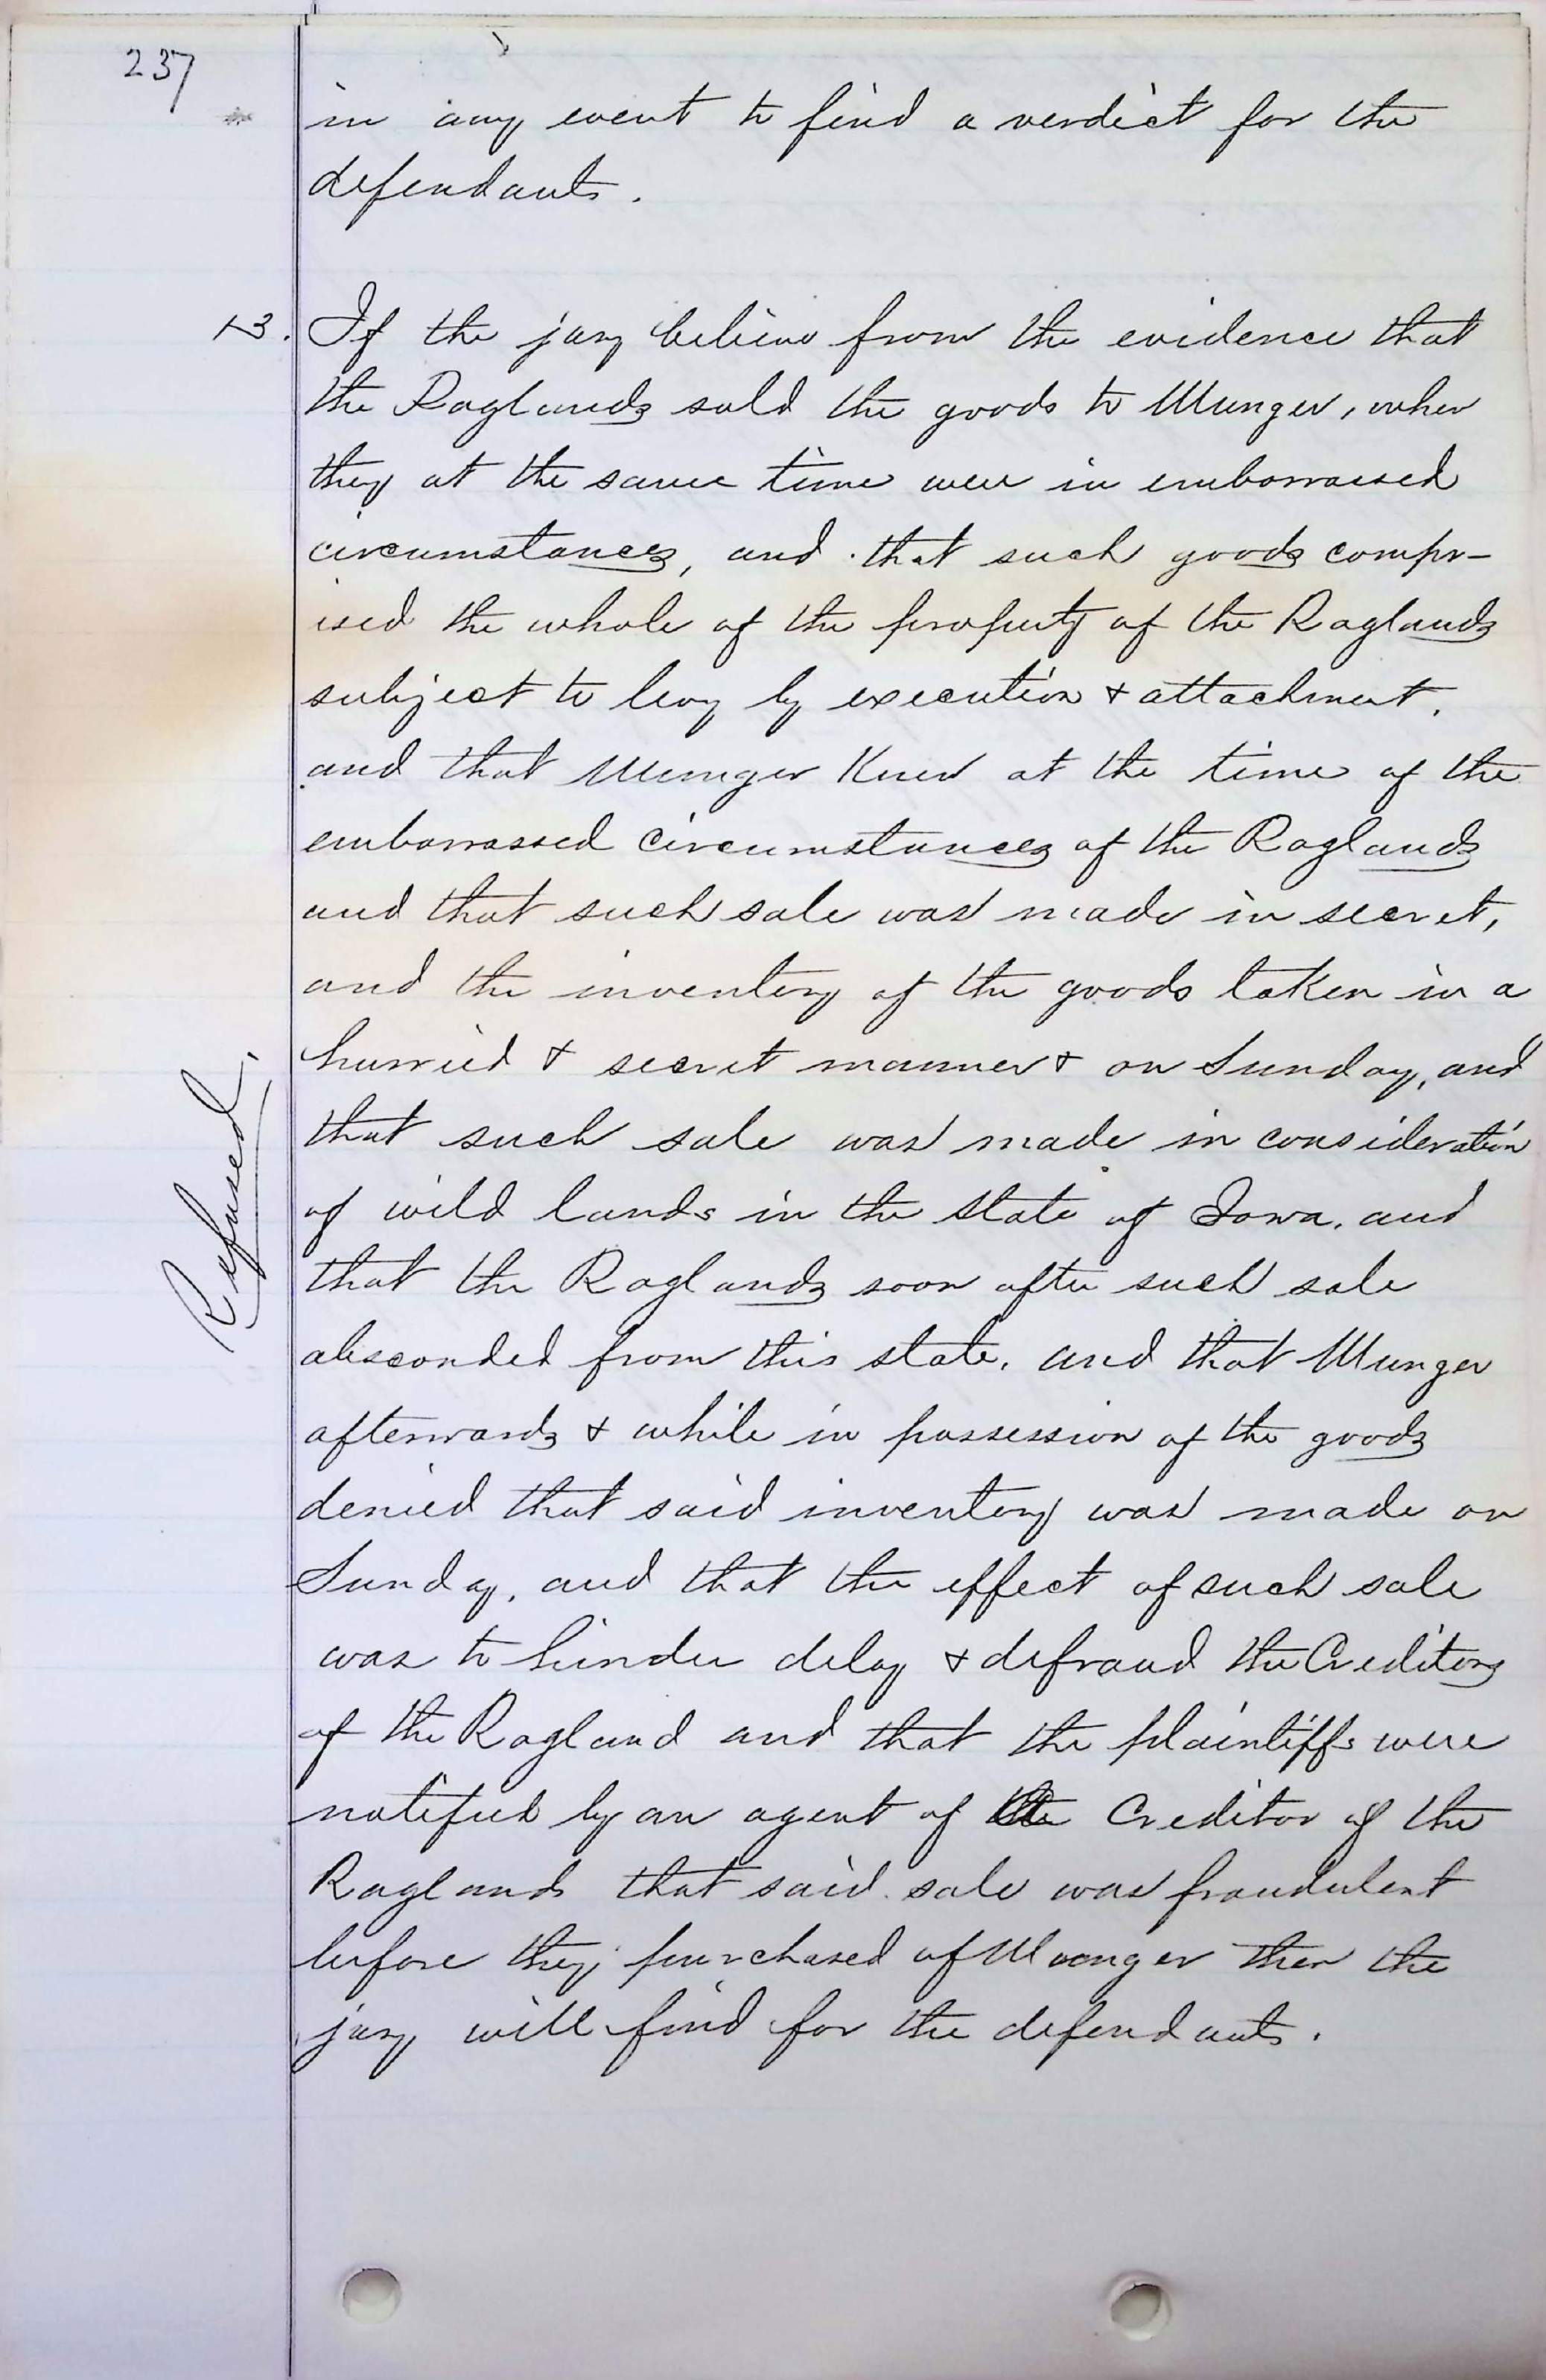 237
in any event to find a verdict for the
defendants.
13. If the jury believe from the evidence that
the Raglands sold the goods to Munger, when
they at the same time were in embarrassed
circumstances, and that such goods compr-
ised the whole of the property of the Raglands
subject to levy by execution & attachment.
and that Munger Knew at the time of the
embarrassed circumstances of the Raglands
and that such sale was made in secret,
and the inventory of the goods taken in a
hurried & secret manner & on Sunday, and
that such sale was made in consideration
of wild lands in the state of Iowa. and
that the Raglands soon after such sale
Refused.
absconded from this state. and that Munger
afterwards & while in possession of the goods
denied that said inventory was made on
Sunday, and that the effect of such sale
was to hinder delay & defraud the Creditors
of the Ragland and that the plaintiffs were
notified by an agent of the Creditor of the
Raglands that said sale was fraudulent
before they purchased of Munger then the
jury will find for the defendants.